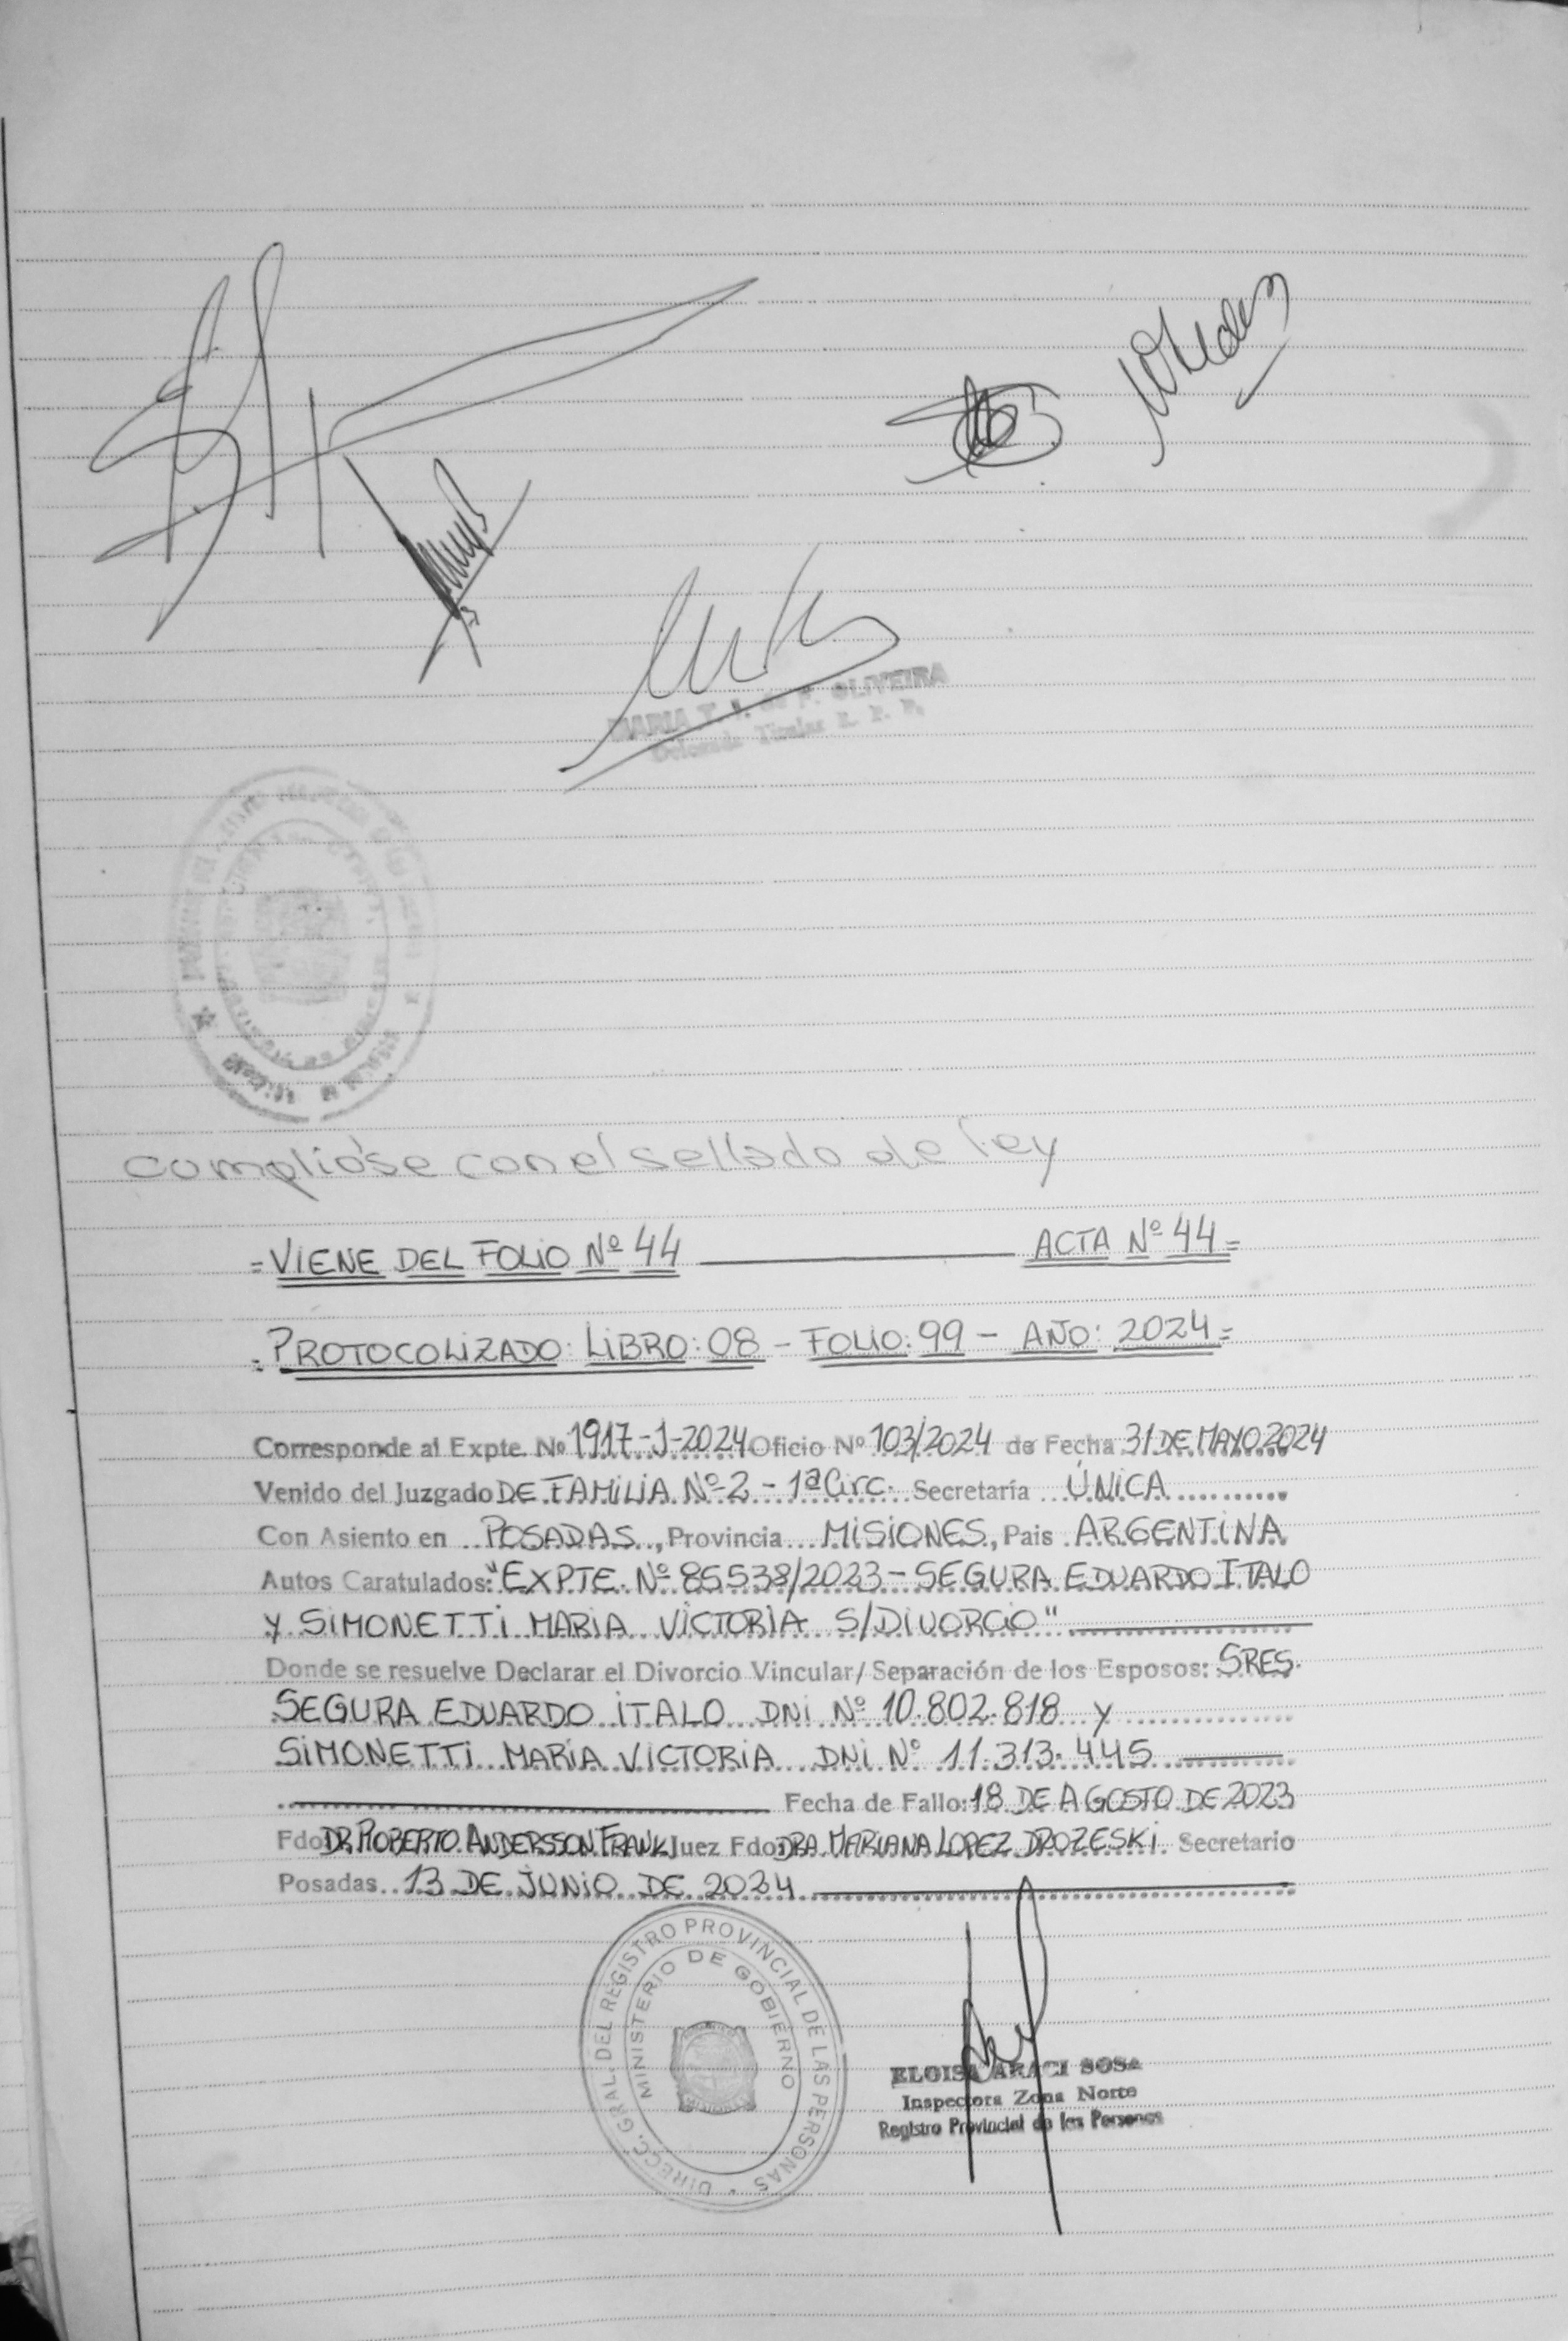 MARIA T. de F. OLIVEIRA
Titular R. P. P.
cumplióse con el sellado de ley
= VIENE DEL FOLIO Nº 44 ACTA Nº 44 =
= PROTOCOLIZADO: LIBRO: 08 - FOLIO: 99 - AÑO: 2024 =
Corresponde al Expte. Nº 1917-J-2024 Oficio Nº 103/2024 de Fecha 31 DE MAYO 2024
Venido del Juzgado DE FAMILIA Nº 2 - 1ª Circ. Secretaría ÚNICA
Con Asiento en POSADAS, Provincia MISIONES, Pais ARGENTINA
Autos Caratulados: "EXPTE. Nº 85538/2023 - SEGURA EDUARDO ITALO
y SIMONETTI MARIA VICTORIA S/DIVORCIO"
Donde se resuelve Declarar el Divorcio Vincular/ Separación de los Esposos: SRES.
SEGURA EDUARDO ITALO DNI Nº 10.802.818 y
SIMONETTI MARIA VICTORIA DNI Nº 11.313.445
Fecha de Fallo: 18 DE AGOSTO DE 2023
Fdo: DR. ROBERTO ANDERSSON FRANK Juez Fdo: DRA MARIANA LOPEZ DROZESKI Secretario
Posadas 13 DE JUNIO DE 2024
DIRECC. GRAL. DEL REGISTRO PROVINCIAL DE LAS PERSONAS
MINISTERIO DE GOBIERNO
ELOISA ARACI SOSA
Inspectora Zona Norte
Registro Provincial de las Personas